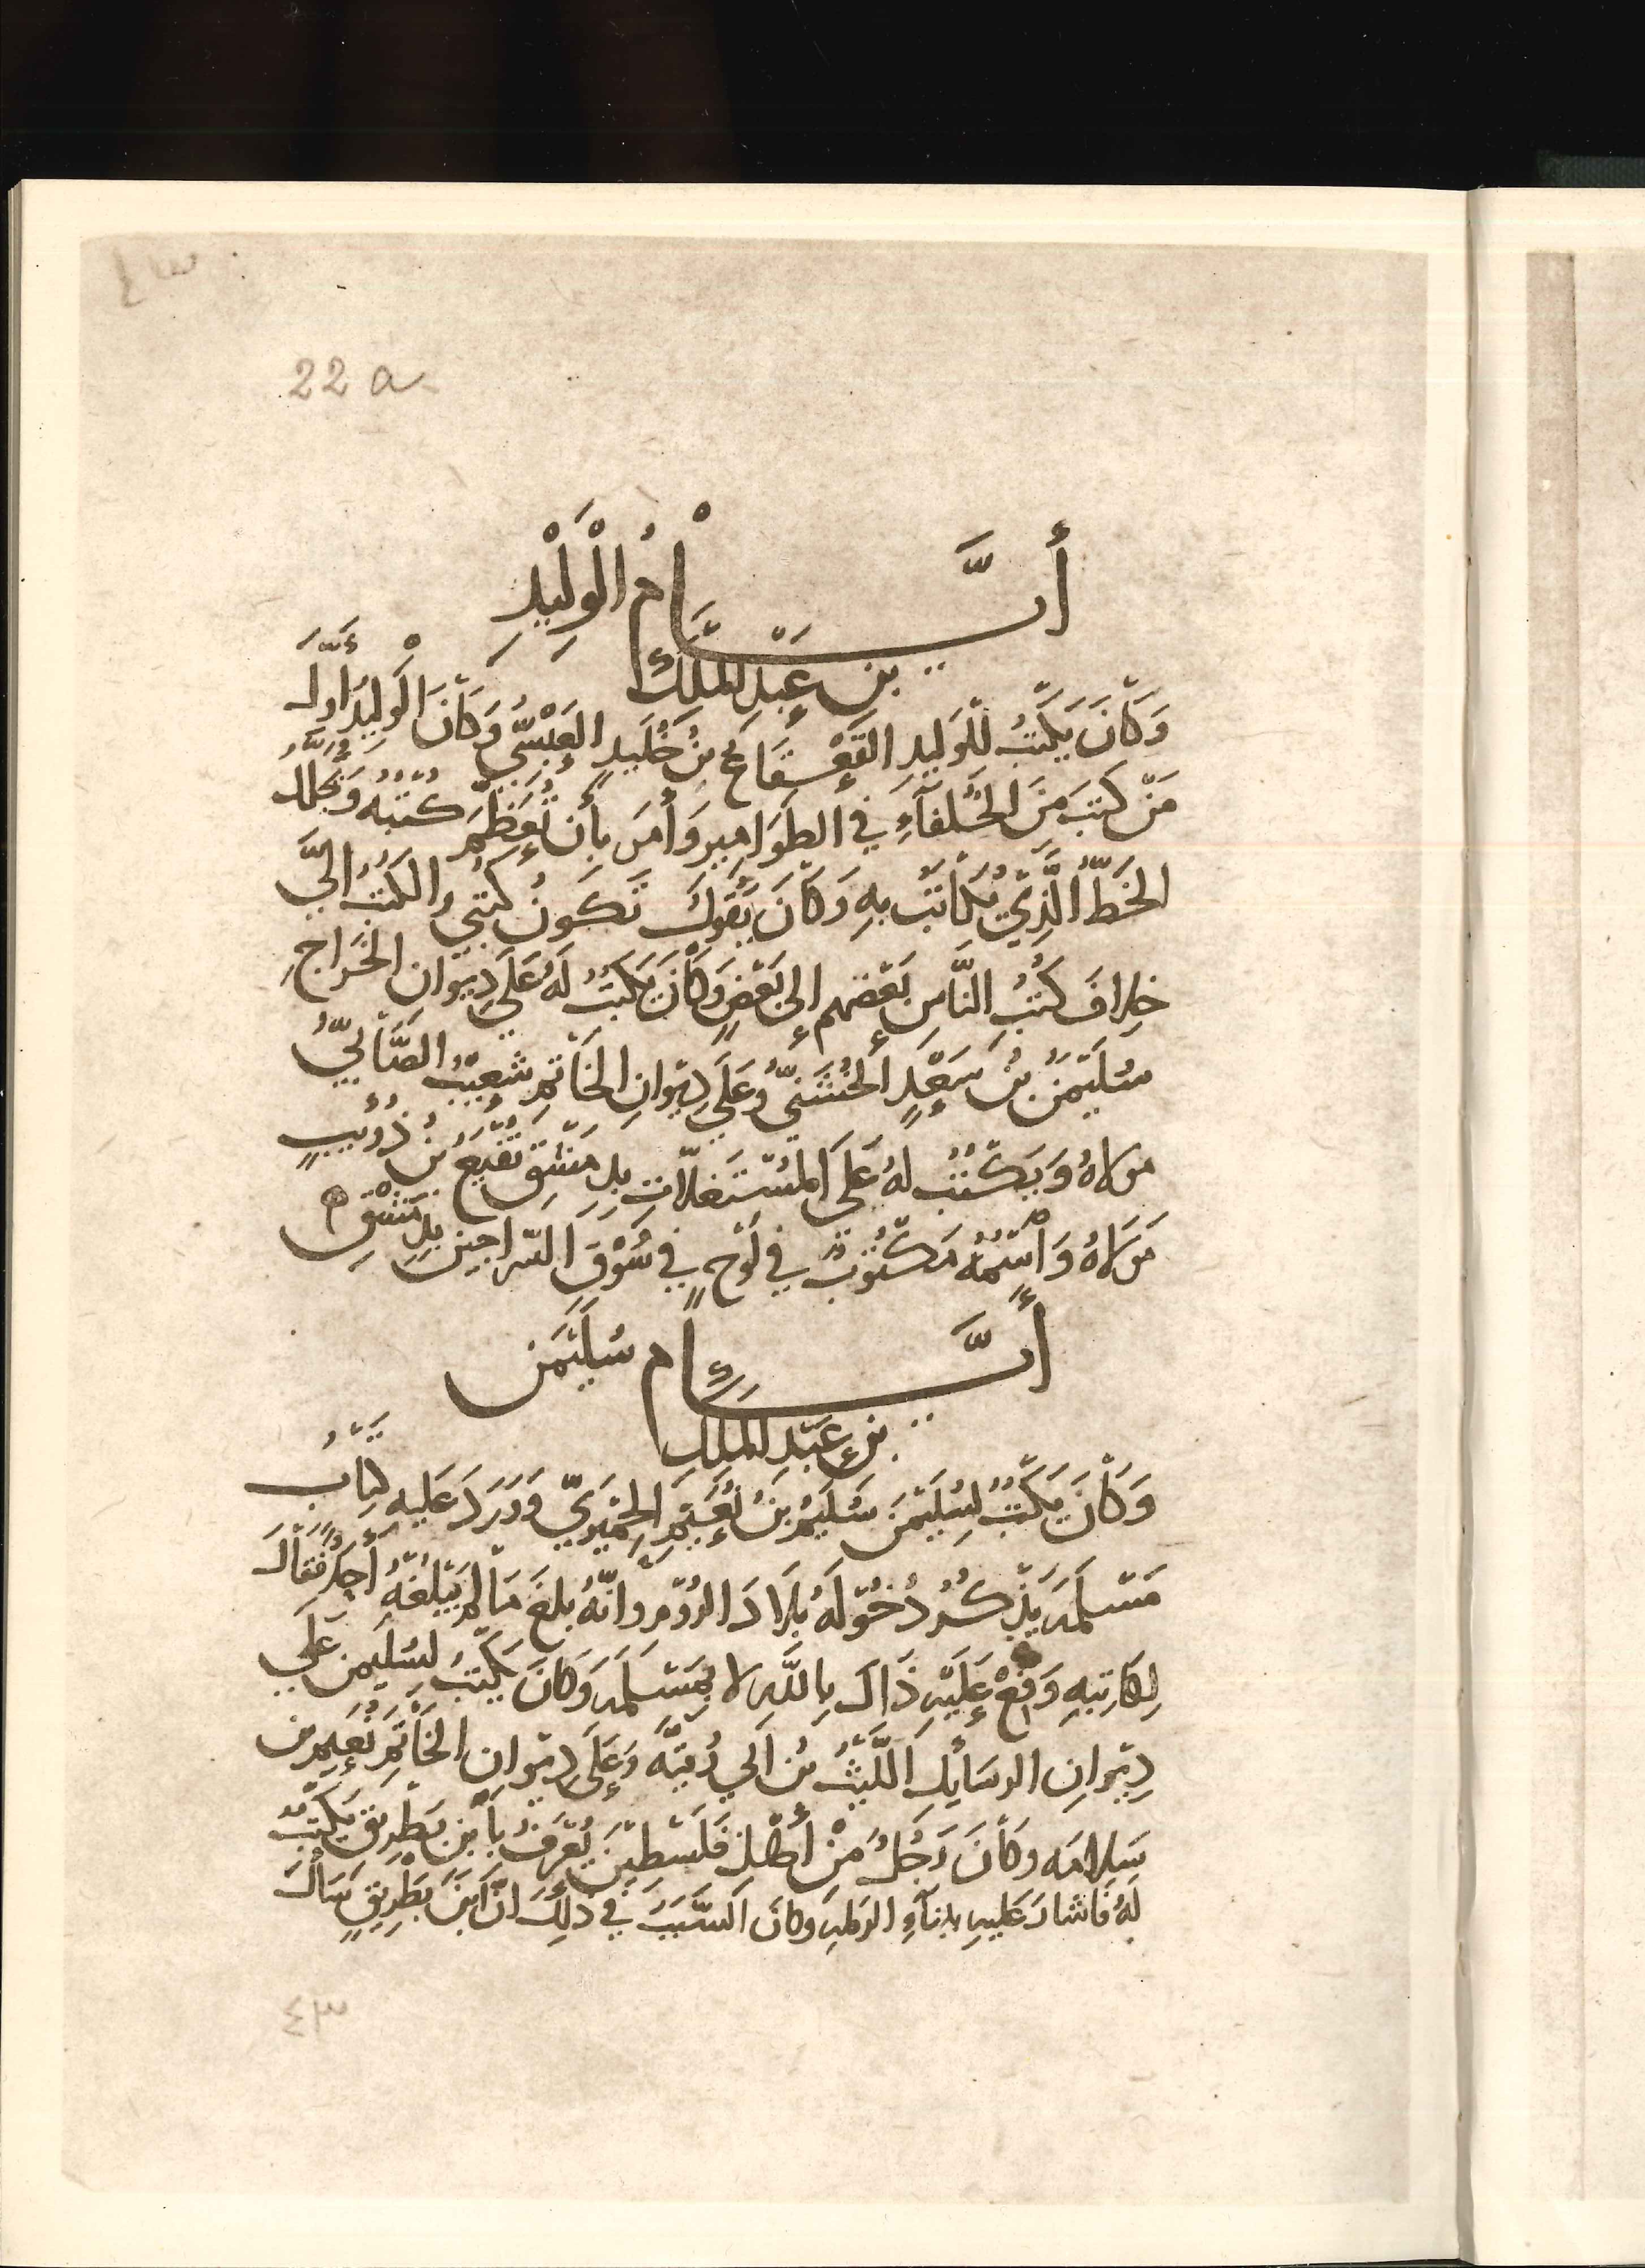 ٤٣
22 a
أَيَّامُ الْوَلِيْدِ
بن عَبْدِ الملكِ
وَكَانَ يَكْتُبُ لِلْوَلِيدِ القَعْقَاعُ بنُ خُلَيدٍ العَبْسِيُّ وَكَانَ الوَلِيدُ أَوَّلَ
مَنْ كَتَبَ مِنَ الخُلَفَآءِ فِي الطَوَامِيرِ وَأَمَرَ بِأَن تُعَظَّمَ كُتُبُهُ وَيُجَلَّلَ
الخَطُّ الَّذِيْ يُكَاتَبُ بِهِ وَكَانَ يَقُولُ تَكُونُ كُتُبِي وَالكُتُبُ إِلَيَّ
خِلَافَ كُتُبِ النَّاسِ بَعْضِهِم إِلى بَعْضٍ وَكَانَ يَكتُبُ لَهُ عَلَى دِيوَانِ الخَرَاجِ
سُلَيْمَنُ بنُ سَعْدٍ الخُشَنِيُّ وَعَلَى دِيْوَانِ الخَاتَمِ شُعَيْبُ الصَّابِيُّ
مَولاهُ وَيَكْتُبُ لهُ عَلَى المُسْتَغَلَّاتِ بِدِمَشْقَ نُفَيْعُ بنُ ذُوَيْبٍ
مَولَاهُ وَاسْمُهُ مَكْتُوبٌ فِي لَوْحٍ فِي سُوْقِ السَّرَّاجِينَ بِدِمَشْقَ ه
أَيَّامُ سُلَيْمَن
بنِ عَبْدِ الملِكِ
وَكَانَ يَكْتُبُ لِسُلَيْمَنَ سُلَيْمُ بنُ نُعَيْمٍ الحِمْيَرِيُّ وَوَرَدَ عَلَيهِ كِتَابُ
مَسْلَمَه يَذْكُرُ دُخُوْلَهُ بِلَادَ الرُوْمِ وَأَنَّهُ بَلَغَ مَا لَمْ يَبْلُغْهُ أَحَدٌ فَقَالَ
لِكَاتِبِهِ وَقِّعْ عَلَيْهِ ذَاكَ بِاللَّهِ لا بِمَسْلَمَه وَكَانَ يَكتُبُ لِسُلَيمنَ عَلَى
دِيْوَانِ الرسَايِلِ اللَّيْثُ بنُ أَبي رُقَيَّه وَعَلَى دِيْوانِ الخَاتَمِ نُعَيم بن
سَلامَه وكَانَ رَجُلٌ مَنْ أَهْلِ فَلَسْطِيْنَ يُعْرَفُ بِابْنِ بَطْرِيْق يَكتُبُ
لَهُ فَأشَارَ عَليهِ بِبِنَآءِ الرملهِ وَكانَ السَّبَبَ فِي ذَلِكَ أنَّ ابنَ بَطْرِيقٍ سَأَلَ
٤٣